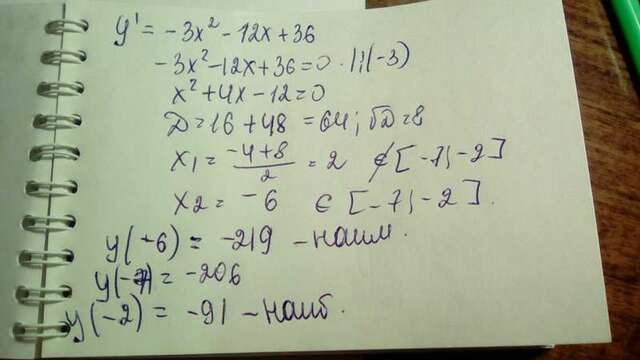 y' = -3x² - 12x + 36
-3x² - 12x + 36 = 0 · || : (-3)
x² + 4x - 12 = 0
D = 16 + 48 = 64 ; √D = 8
x₁ = (-4+8)/2 = 2 ∉ [-7; -2]
x₂ = -6 ∈ [-7; -2].
y(-6) = -219 - наим.
y(-7) = -206
y(-2) = -91 - наиб.